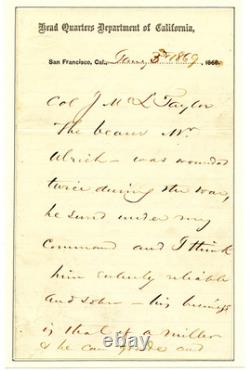 Head Quarters Department of California,
San Francisco, Cal., 3d 1869, 186
Col J McL Taylor
The bearer Mr.
Ulrich - was wounded
twice during the war,
he served under my
command and I think
him entirely reliable
and sober - his business
is that of a miller
& he can and
© wahoha.com